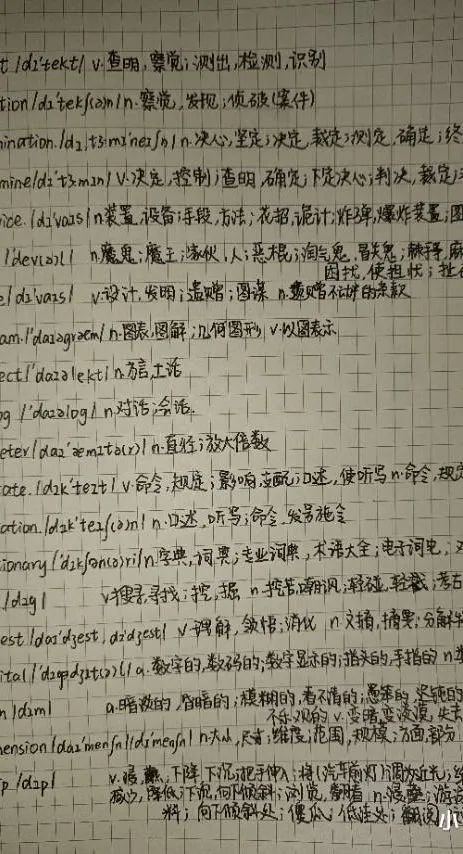 t /dɪ'tekt/ v.查明,察觉;测出,检测,识别
tion /dɪ'tekʃ(ə)n/ n.察觉,发现;侦破(案件)
mination /dɪˌtɜːmɪ'neɪʃn/ n.决心,坚定;决定,裁定;测定,确定;终
mine /dɪ'tɜːmɪn/ v.决定,控制;查明,确定;下定决心;判决,裁定;
vice /dɪ'vaɪs/ n.装置,设备;手段,方法;花招,诡计;炸弹,爆炸装置;图
/'dev(ə)l/ n.魔鬼;魔王;家伙,人;恶棍;淘气鬼,冒失鬼;
困扰,使担忧;
e /dɪ'vaɪz/ v.设计,发明;遗赠;图谋 n.遗赠不动产的条款
am /'daɪəɡræm/ n.图表,图解;几何图形 v.以图表示
ect /'daɪəlekt/ n.方言,土话
og /'daɪəlɒɡ/ n.对话;会话.
eter /daɪ'æmɪtə(r)/ n.直径;放大倍数
ate /dɪk'teɪt/ v.命令,规定;影响,支配;口述,使听写 n.命令,规定
ation /dɪk'teɪʃ(ə)n/ n.口述,听写;命令,发号施令
ionary /'dɪkʃən(ə)ri/ n.字典,词典;专业词典,术语大全;电子词典;
/dɪɡ/ v.搜寻,寻找;挖,掘 n.挖苦,嘲讽;轻碰,轻戳;考古
est /daɪ'dʒest; dɪ'dʒest/ v.理解,领悟;消化 n.文摘,摘要;分解
ital /'dɪdʒɪt(ə)l/ a.数字的,数码的;数字显示的;指头的,手指的 n.
m /dɪm/ a.暗淡的,昏暗的;模糊的,看不清的;愚笨的
不乐观的 v.变暗,变淡漠,失去
ension /daɪ'menʃn//dɪ'menʃn/ n.大小,尺寸;维度;范围,规模;方面,部分
p /dɪp/ v.浸,蘸,下降,下沉;把手伸入;将(汽车前灯)调为近光;
减少,降低;下沉,向下倾斜;浏览,翻看 n.浸,蘸;游泳
料;向下倾斜处;傻瓜;低洼处;翻阅
小